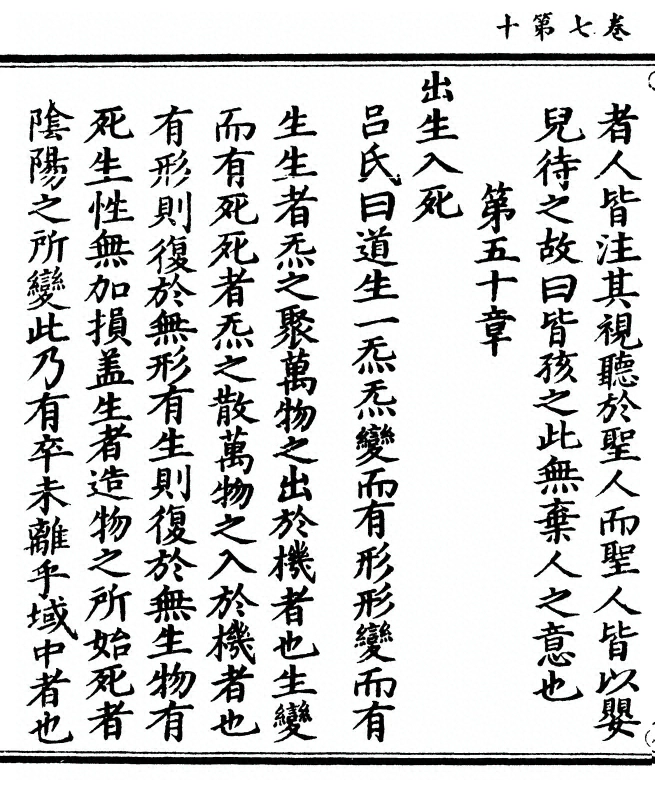 卷七第十
者人皆注其視聽於聖人而聖人皆以嬰
兒待之故曰皆孩之此無棄人之意也
第五十章
出生入死
呂氏曰道生一炁炁變而有形形變而有
生生者炁之聚萬物之出於機者也生變
而有死死者炁之散萬物之入於機者也
有形則復於無形有生則復於無生物有
死生性無加損盖生者造物之所始死者
陰陽之所變此乃有卒未離乎域中者也